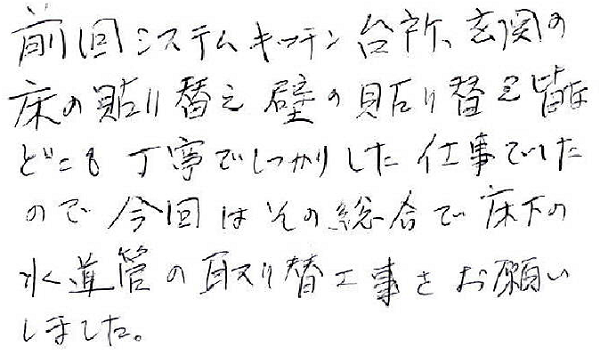 前回システムキッチン台所、玄関の
床の貼り替え壁の貼り替え皆は
どこも丁寧でしっかりした仕事でした
ので今回はその総合で床下の
水道管の取り替工事をお願い
しました。